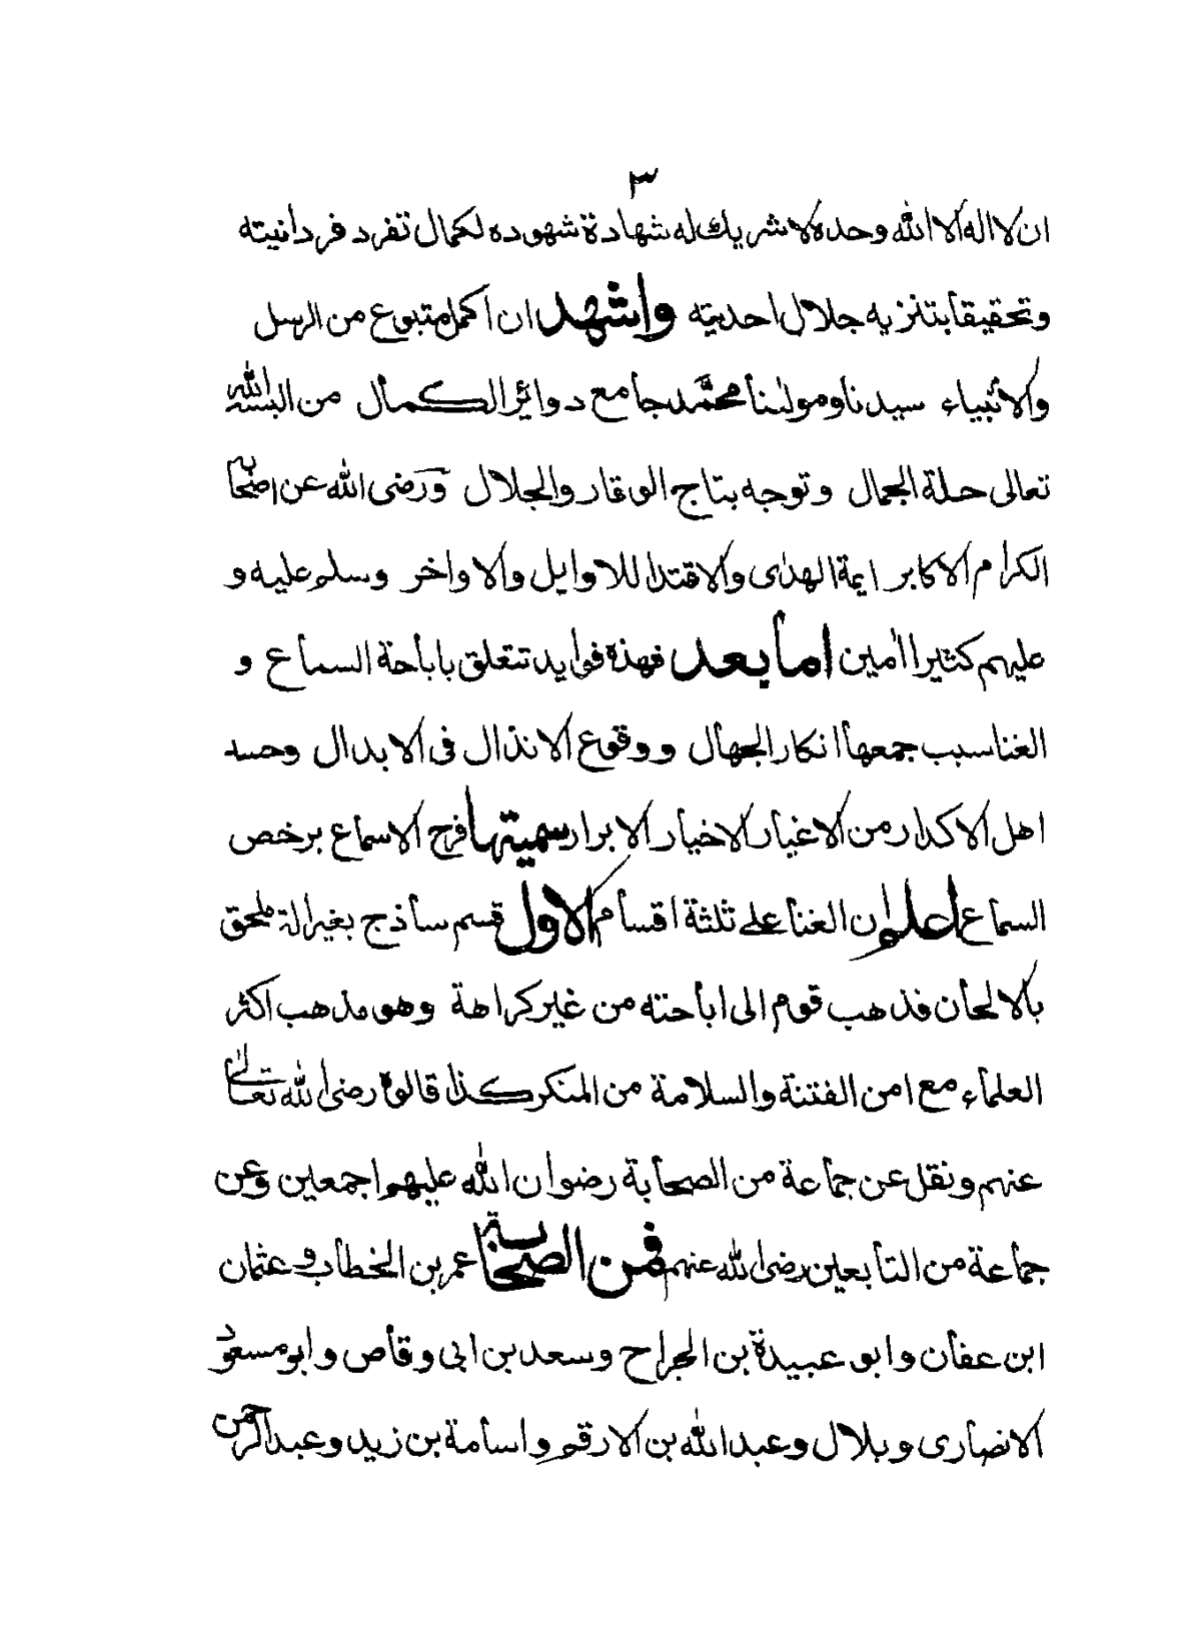 ٣
ان لا اله الا الله وحده لا شريك له شهادة شهوده لكمال تفرد فردانيته
وتحقيقا بتنزيه جلال احديته واشهد ان اكمل متبوع من الرسل
والأنبياء سيدنا ومولٰنا محمّد جامع دوائر الكمال من البسه الله
تعالى حلة الجمال وتوجه بتاج الوقار والجلال ورَضى الله عن اصحابه
الكرام الاكابر ايمة الهدٰى والاقتدا للاوايل والاواخر وسلم عليه و
عليهم كثيرا اٰمين اما بعد فهذة فوايد تتعلق باباحة السماع و
الغنا سبب جمعها انكار الجهال ووقوع الانذال فى الابدال وحسد
اهل الاكدار من الاغيار الاخيار الابرار سميتها فرح الاسماع برخص
السماع اعلم ان الغنا على ثلثة اقسام الاول قسم ساذج بغير الة ملحق
بالالحان فذهب قوم الى اباحته من غير كراهة وهو مذهب اكثر
العلماء مع امن الفتنة والسلامة من المنكر كذا قالوه رضى الله تعالىٰ
عنهم ونقل عن جماعة من الصحابة رضوان الله عليهم اجمعين وعن
جماعة من التابعين رضى الله عنهم فمن الصحابة عمر بن الخطاب وعثمان
ابن عفان وابو عبيدة بن الجراح وسعد بن ابى وقاص وابو مسعود
الانصارى وبلال وعبد الله بن الارقم واسامة بن زيد وعبد الرحمن